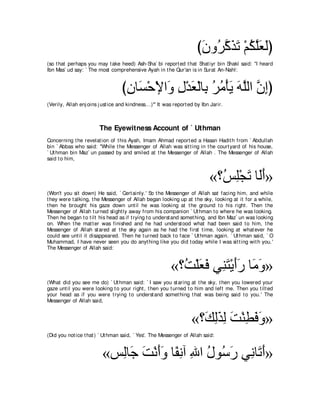 (لَعَلَّكُمْ تَذَكَّرُونَ)
(so that perhaps you may take heed) Ash-Sha`bi reported that Shatiyr bin Shakl said: "I heard
Ibn Mas`ud say: `The most comprehensive Ayah in the Qur'an is in Surat An-Nahl:
(إِنَّ اللَّهَ يَأْمُرُ بِالْعَدْلِ وَالإْحْسَانِ)
(Verily, Allah enjoins justice and kindness...)'" It was reported by Ibn Jarir.
The Eyewitness Account of `Uthman
Concerning the revelation of this Ayah, Imam Ahmad reported a Hasan Hadith from `Abdullah
bin `Abbas who said: "While the Messenger of Allah was sitting in the courtyard of his house,
`Uthman bin Maz`un passed by and smiled at the Messenger of Allah . The Messenger of Allah
said to him,
«أَلَا تَجْلِسُ؟»
(Won't you sit down) He said, `Certainly.' So the Messenger of Allah sat facing him, and while
they were talking, the Messenger of Allah began looking up at the sky, looking at it for a while,
then he brought his gaze down until he was looking at the ground to his right. Then the
Messenger of Allah turned slightly away from his companion `Uthman to where he was looking.
Then he began to tilt his head as if trying to understand something, and Ibn Maz`un was looking
on. When the matter was finished and he had understood what had been said to him, the
Messenger of Allah stared at the sky again as he had the first time, looking at whatever he
could see until it disappeared. Then he turned back to face `Uthman again. `Uthman said, `O
Muhammad, I have never seen you do anything like you did today while I was sitting with you.'
The Messenger of Allah said:
«وَمَا رَأَيْتَنِي فَعَلْتُ؟»
(What did you see me do) `Uthman said: `I saw you staring at the sky, then you lowered your
gaze until you were looking to your right, then you turned to him and left me. Then you tilted
your head as if you were trying to understand something that was being said to you.' The
Messenger of Allah said,
«وَفَطِنْتَ لِذَلِكَ؟»
(Did you notice that) `Uthman said, `Yes'. The Messenger of Allah said:
«أَتَانِي رَسُولُ اللهِ آنِفًا وَأَنْتَ جَالِسٌ»